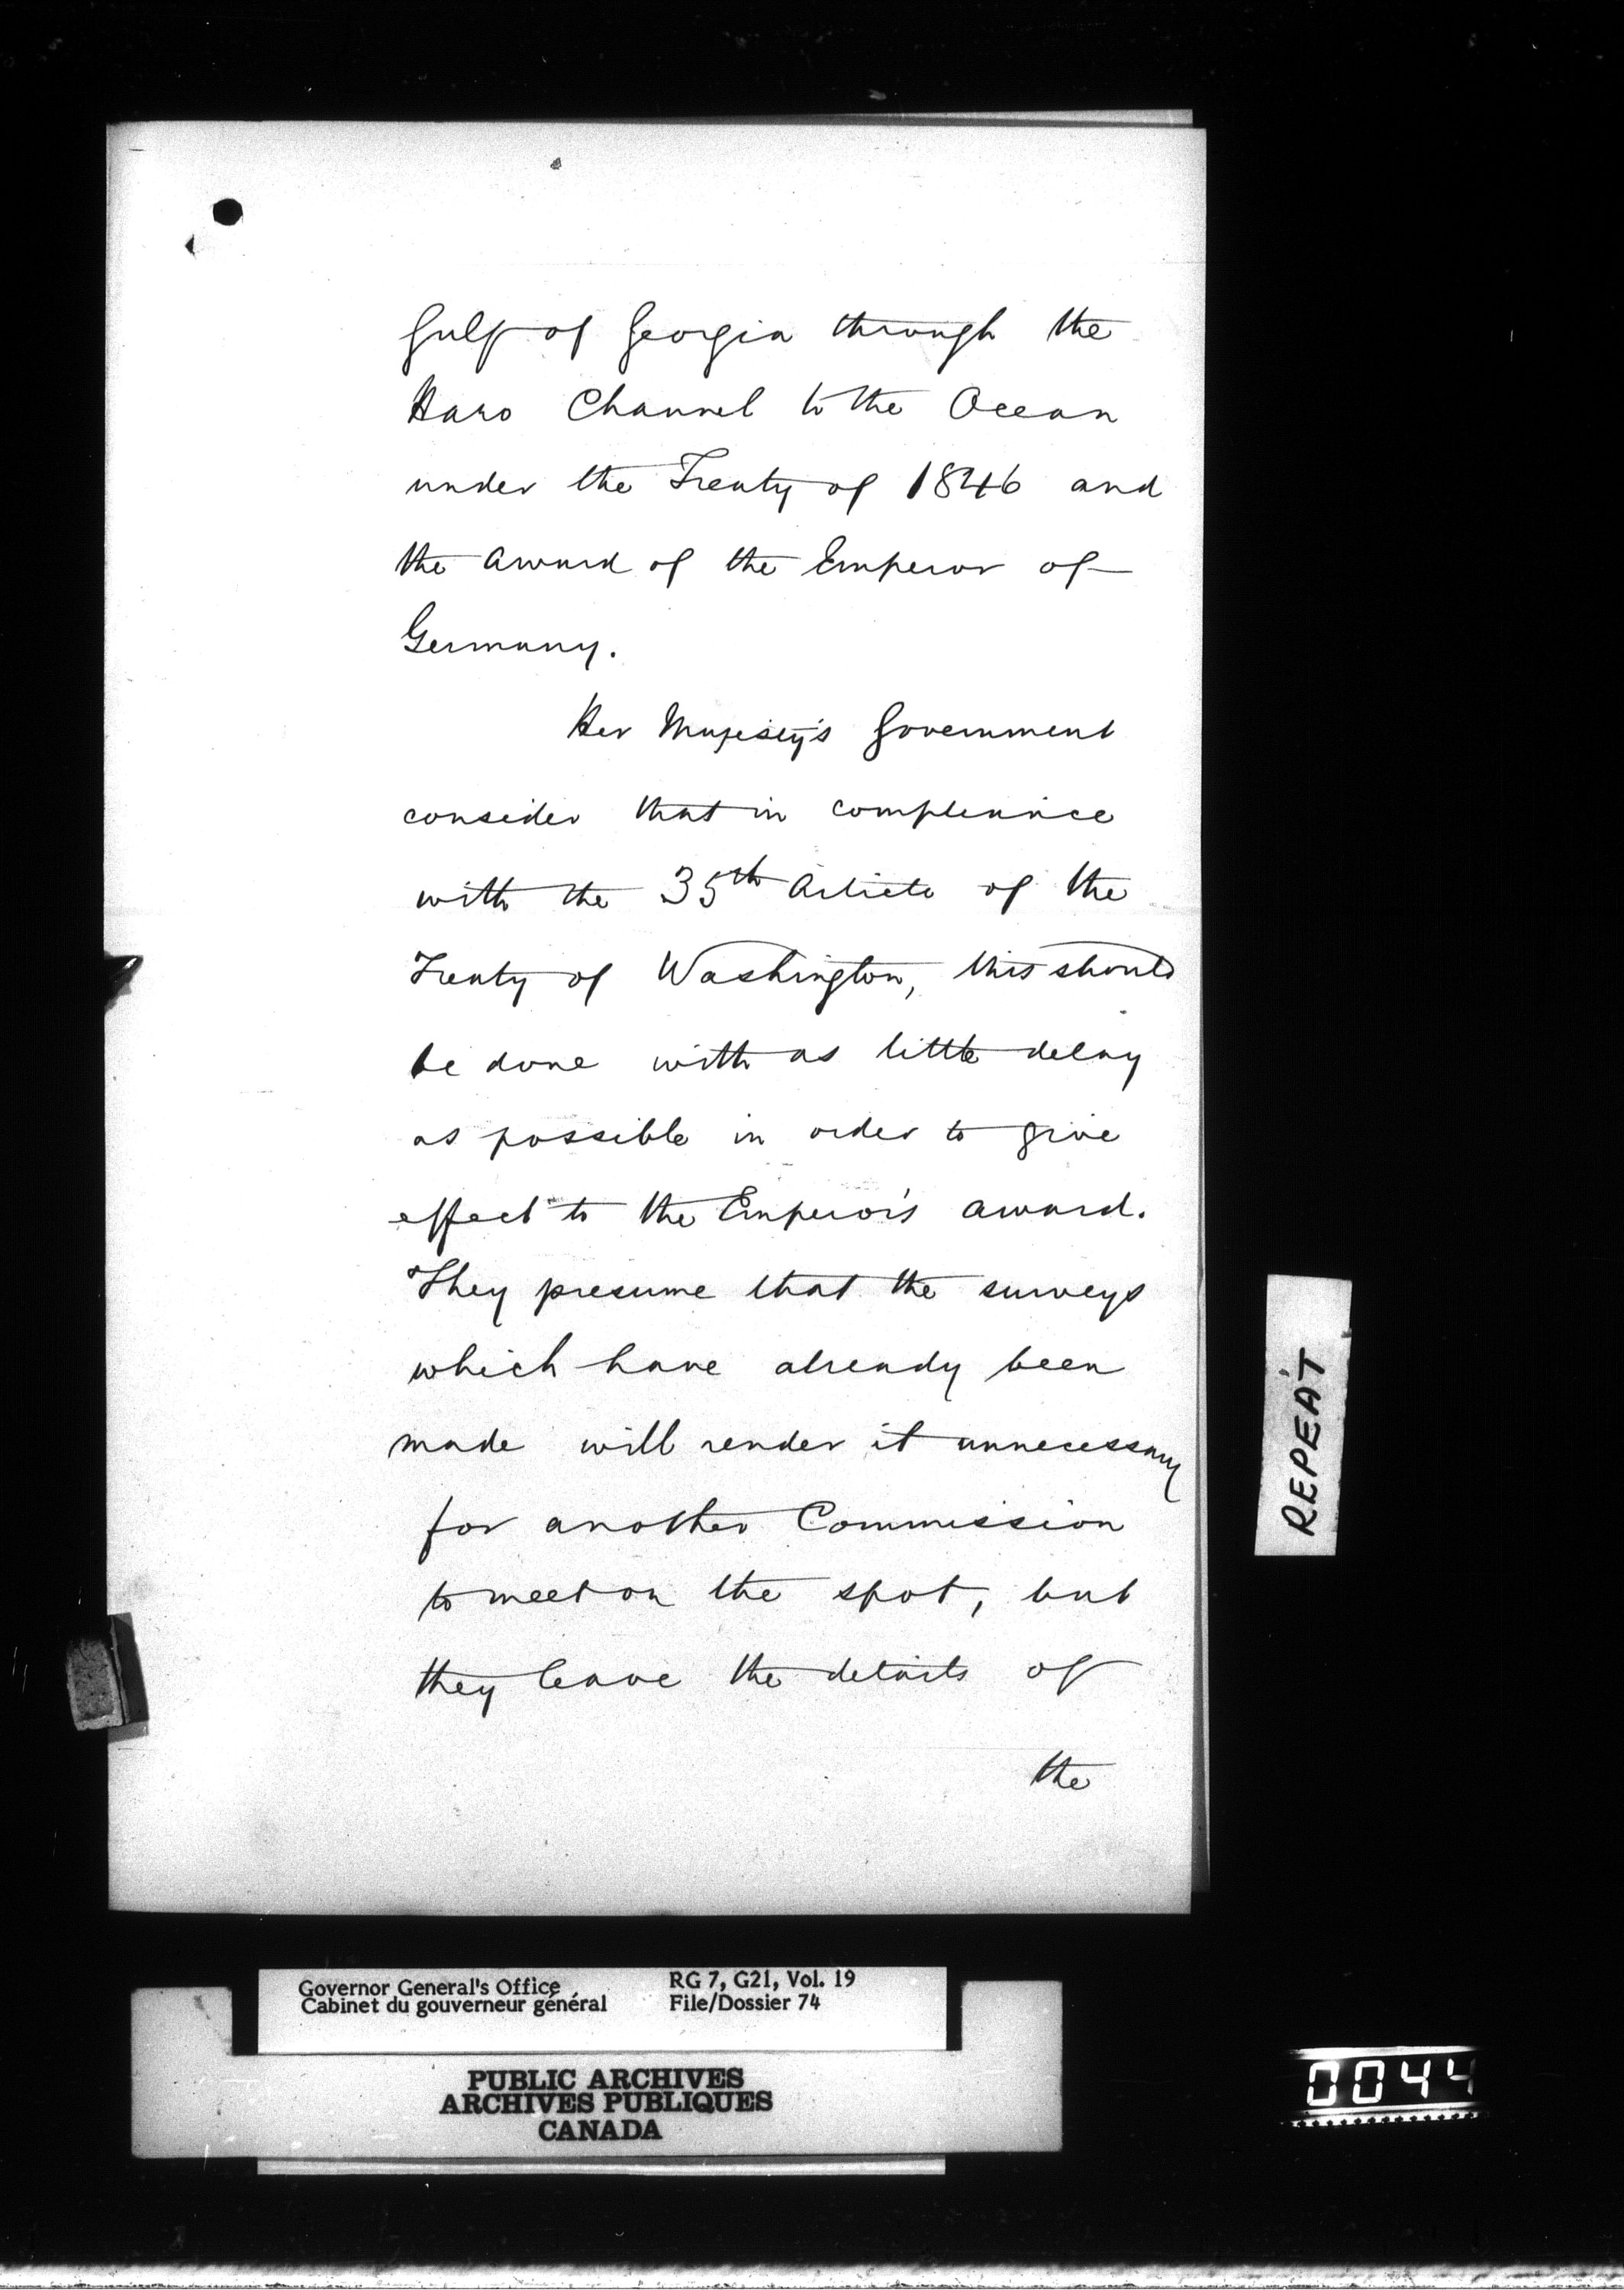 Gulf of Georgia through the
Haro Channel to the Ocean
under the Treaty of 1846 and
the award of the Emperor of
Germany.
Her Majesty's Government
consider that in compliance
with the 35th Article of the
Treaty of Washington, this should
be done with as little delay
as possible in order to give
effect to the Emperor's award.
They presume that the surveys
which have already been
made will render it unnecessary
for another Commission
to meet on the spot, but
they leave the details of
the
REPEAT
Governor General's Office
Cabinet du gouverneur général
RG 7, G21, Vol. 19
File/Dossier 74
PUBLIC ARCHIVES
ARCHIVES PUBLIQUES
CANADA
0044